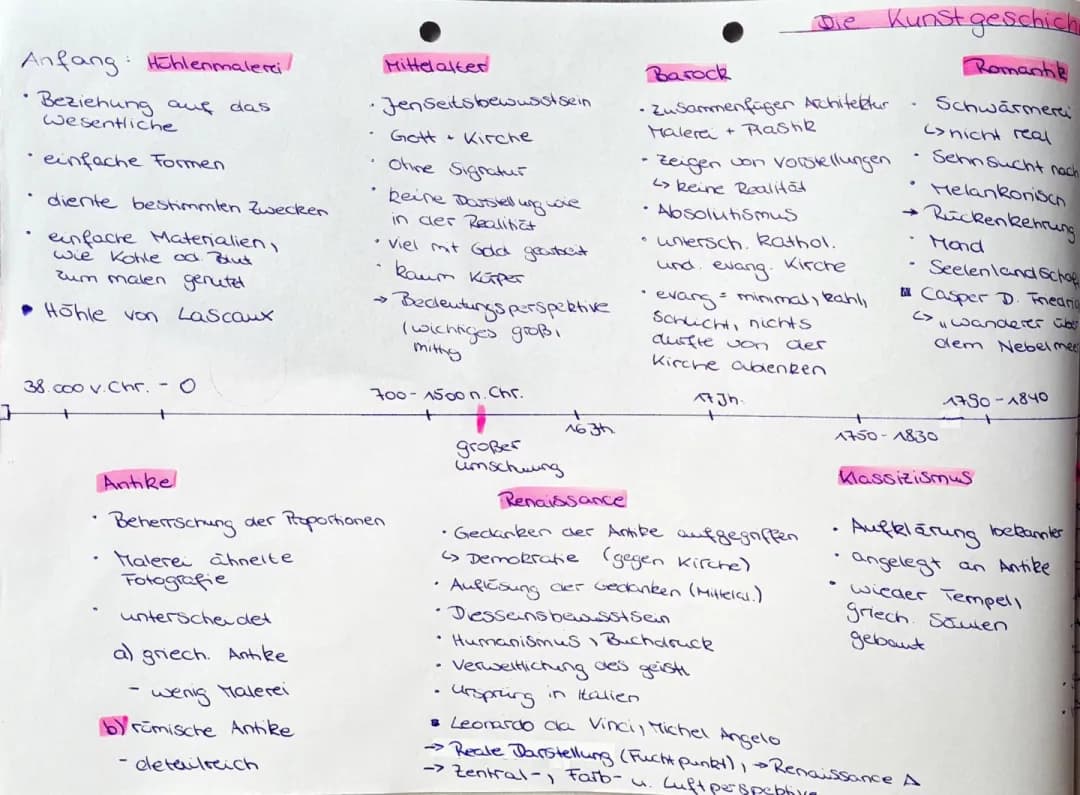 Die Kunstgeschich
Anfang: Höhlenmalerei
· Beziehung auf das
wesentliche
· einfache Formen
· diente bestimmten Zwecken
· einfache Materialien,
wie Kohle od. Blut
zum malen genutzt
• Höhle von Lascaux
38.000 v.Chr. - 0
Mittelalter
· Jenseitsbewusstsein
· Gott + Kirche
· Ohne Signatur
· keine Darstellung wie
in der Realität
· Viel mit Gold gearbeitet
· kaum Körper
→ Bedeutungsperspektive
(wichtiges groß,
mittig
700-1500 n. Chr.
Barock
· Zusammenfügen Architektur
Malerei + Plastik
· Zeigen von Vorstellungen
↳ keine Realität
· Absolutismus
· untersch. kathol.
und. evang. Kirche
· evang = minimal, kahl,
Schlicht, nichts
durfte von der
Kirche ablenken
17 Jh.
Romantik
· Schwärmerei
↳ nicht real
· Sehnsucht nach
· Melankonisch
→ Rückenkehrung
· Mond
· Seelenlandschaf
▪ Casper D. Friedri
↳ „wanderer übe
dem Nebelmee
1790-1840
großer
umschwung
16 Jh
1750-1830
Antike
· Beherrschung der Proportionen
· Malerei ähnelte
Fotografie
· unterscheidet
a) griech. Antike
- wenig Malerei
b) römische Antike
- detailreich
Renaissance
· Gedanken der Antike aufgegriffen
↳ Demokratie (gegen Kirche)
· Auflösung der Gedanken (Mittelal.)
· Diesseinsbewusstsein
· Humanismus, Buchdruck
· Verweltlichung des geistl
· Ursprung in Italien
▪ Leonardo da Vinci, Michel Angelo
→ Reale Darstellung (Fuchtpunkt), → Renaissance Δ
→ Zentral-, Farb- u. Luftperspektive
Klassizismus
· Aufklärung bekannter
· angelegt an Antike
· wieder Tempel,
griech. Säulen
gebaut